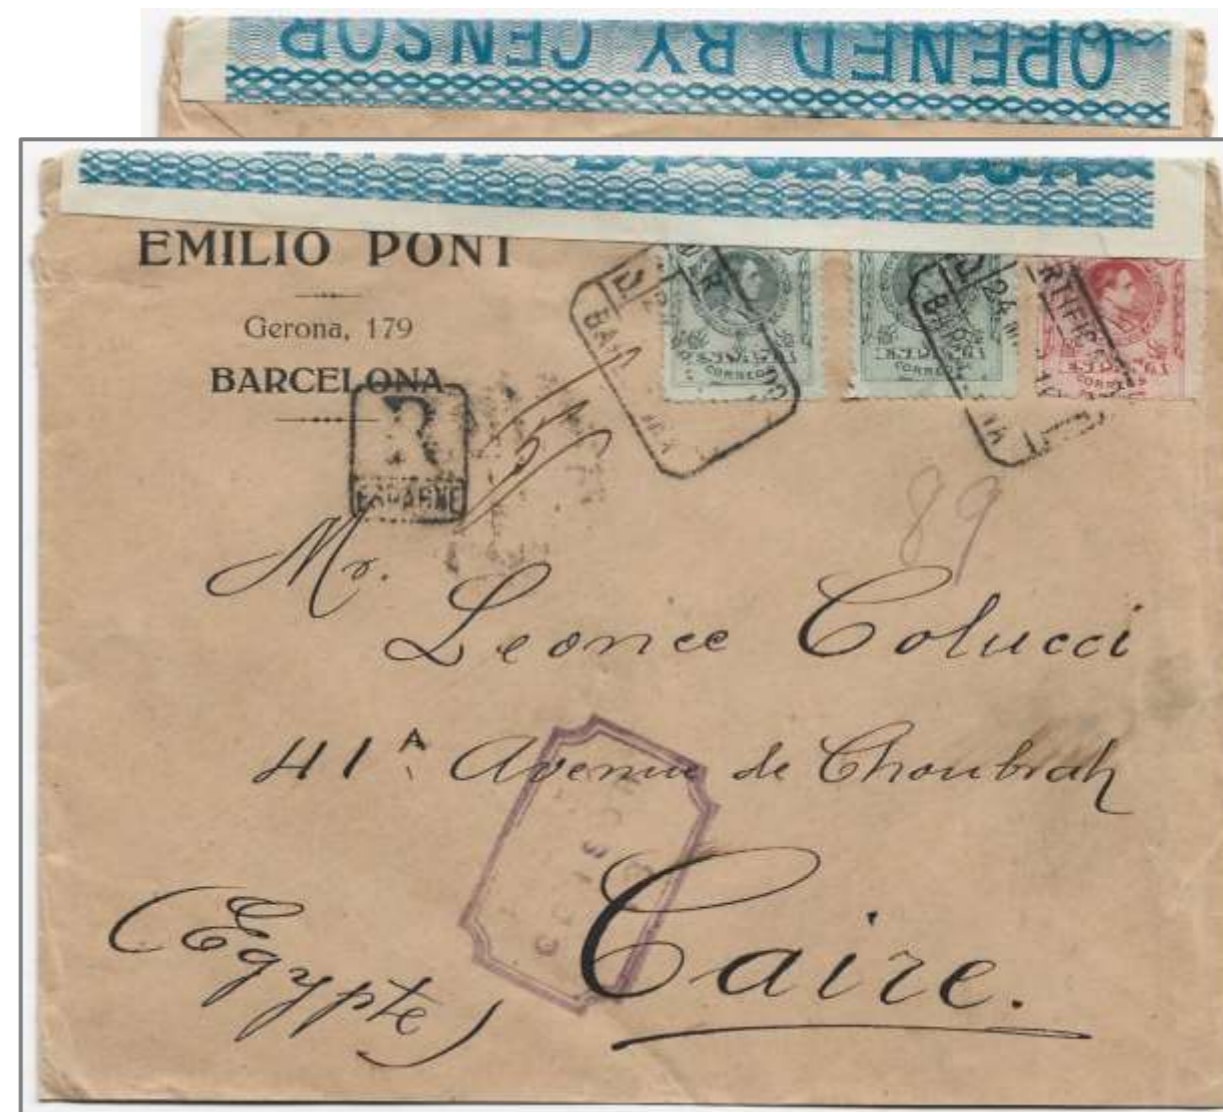 OPENED BY CENSOR
EMILIO PONT
Gerona, 179
BARCELONA
R
ESPAGNE
CORREOS
CORREOS
CORREOS
24
89
Mr.
Leonce Colucci
41A Avenue de Choubrah
Caire.
(Egypte)